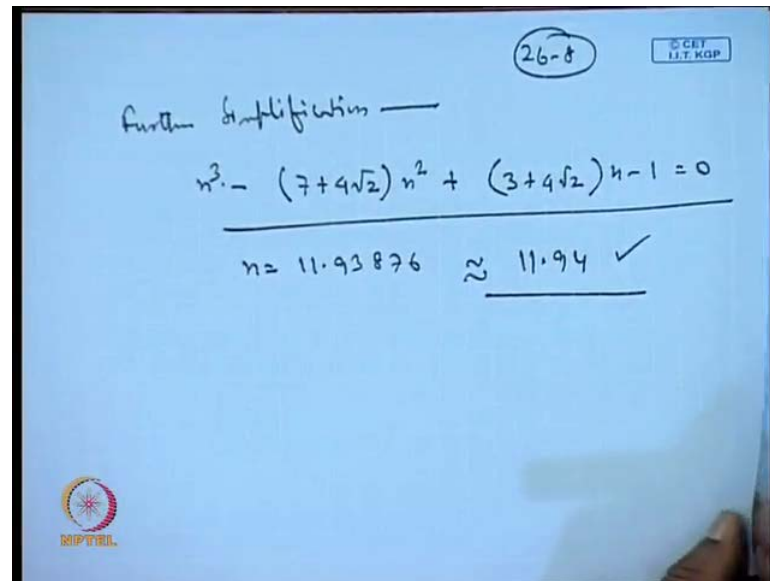 26-8
© CET
I.I.T. KGP
Further Simplification —
n³ - (7+4√2) n² + (3+4√2) n - 1 = 0
n = 11.93876 ≈ 11.94 ✓
NPTEL